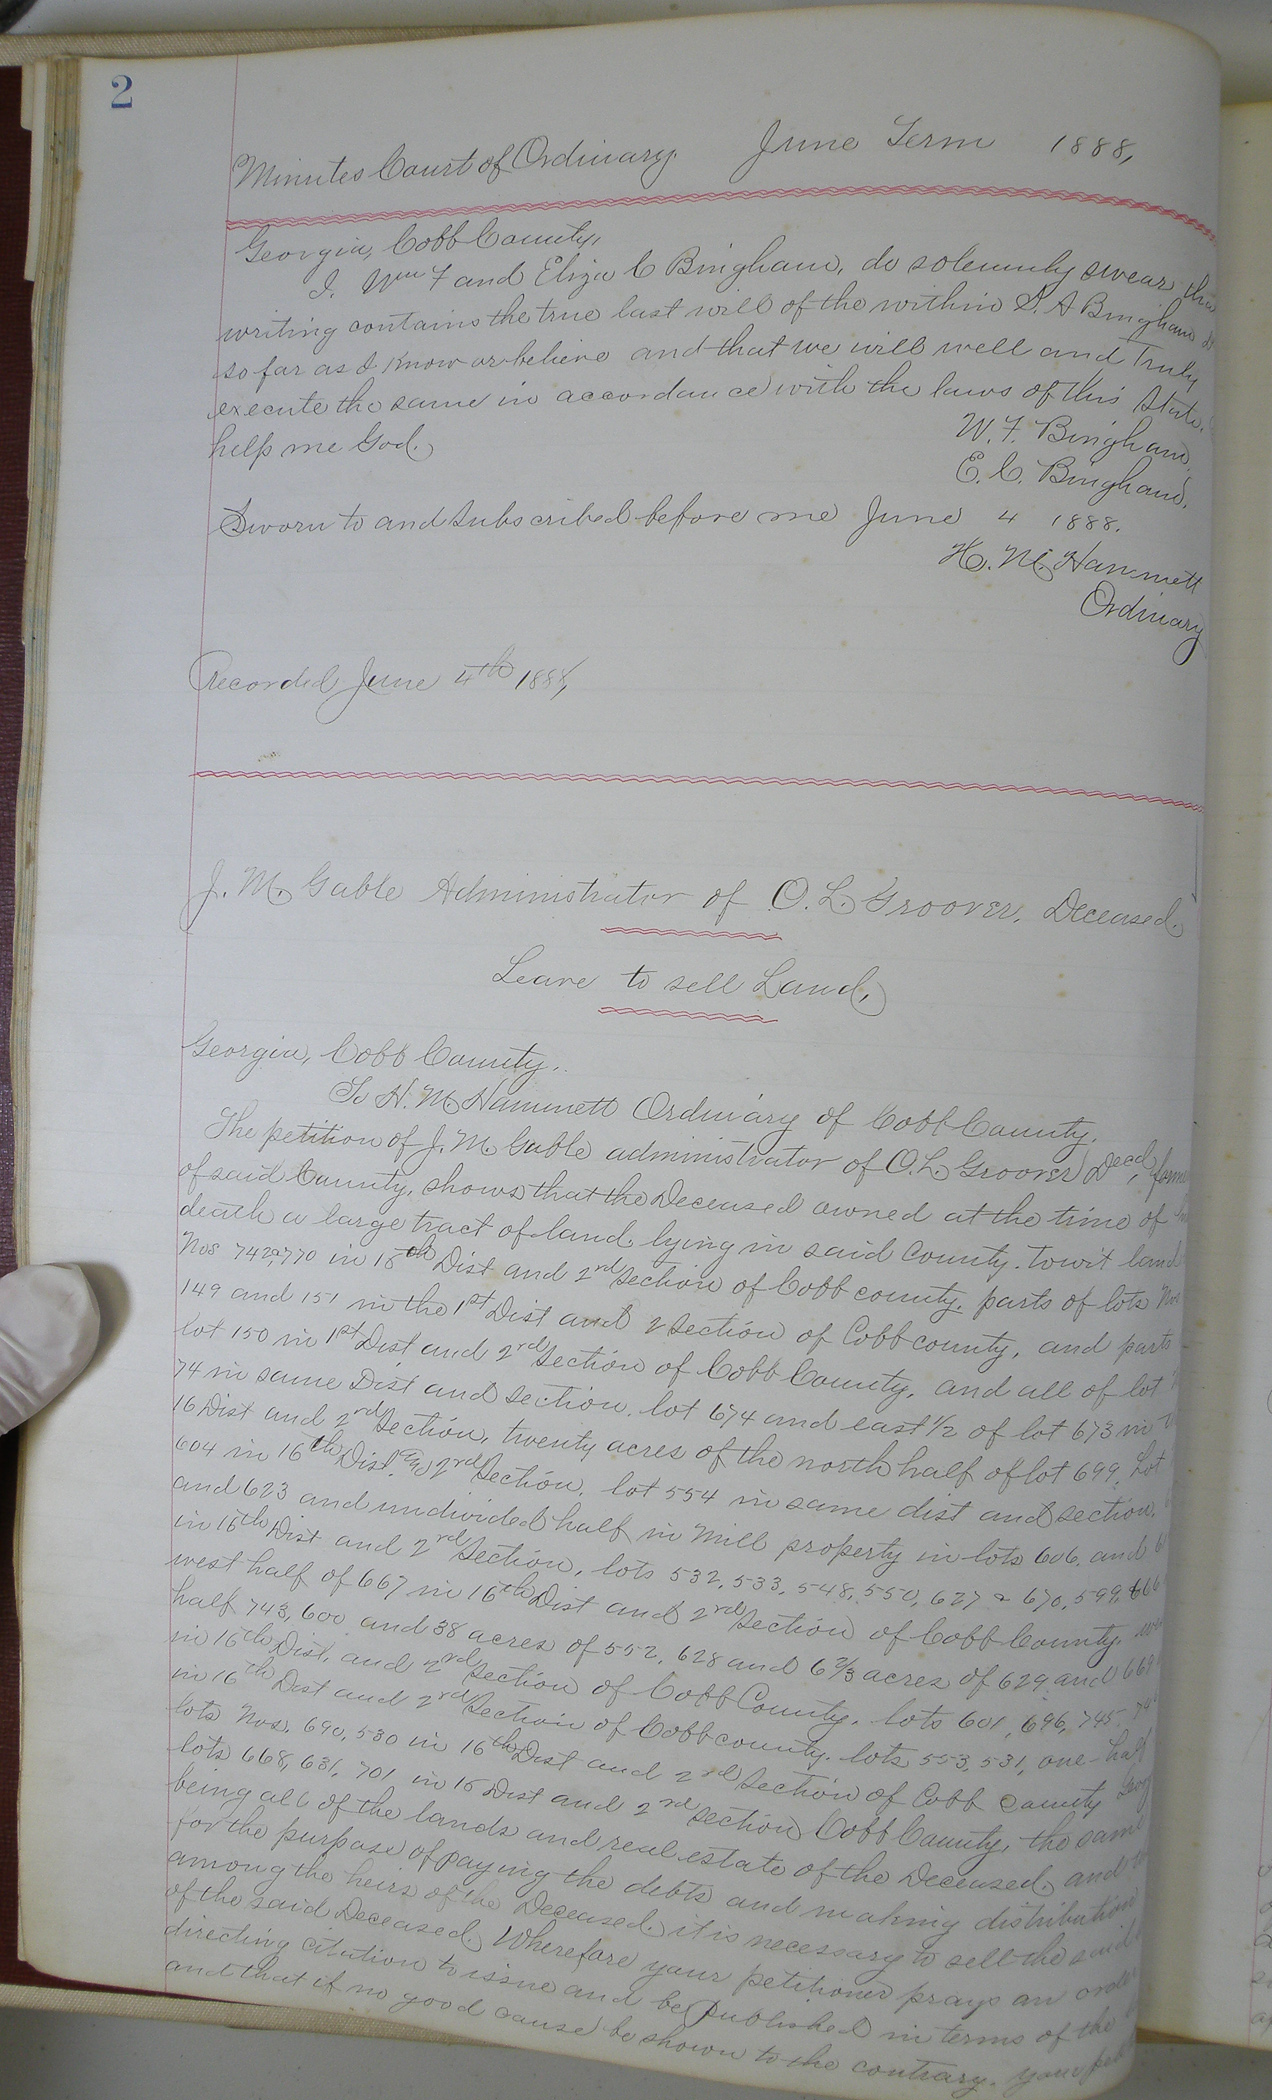 2
Minutes Court of Ordinary. June Term 1888,
Georgia, Cobb County,
I, Wm F and Eliza C Bingham, do solemnly swear this
writing contains the true last will of the within S. A Bingham
so far as I know or believe and that we will well and Truly
execute the same in accordance with the laws of this State.
help me God.
W. F. Bingham,
E. C. Bingham,
Sworn to and Subscribed before me June 4 1888.
H. M. Hammett
Ordinary
Recorded June 4th 1888,
J. M. Gable Administrator of O. L. Groover, Deceased.
Leave to sell Land,
Georgia, Cobb County.
To H. M. Hammett Ordinary of Cobb County.
The petition of J. M. Gable administrator of O. L. Groover Decd,
of said County, shows that the Deceased owned at the time of
death a large tract of land lying in said County. towit land
Nos 742 & 770 in 16th Dist and 2nd Section of Cobb county. parts of lots Nos
149 and 151 in the 1st Dist and 2 Section of Cobb county, and parts
lot 150 in 1st Dist and 2nd Section of Cobb County, and all of lot
74 in same Dist and Section. lot 674 and east 1/2 of lot 673 in
16 Dist and 2nd Section, twenty acres of the north half of lot 699, Lot
604 in 16th Dist and 2nd Section. lot 554 in same dist and section.
and 623 and undivided half in Mill property in lots 606, and
in 16th Dist and 2nd Section, lots 532, 533, 548, 550, 627 & 670, 599,
west half of 667 in 16th Dist and 2nd Section of Cobb County.
half 743, 600 and 38 acres of 552, 628 and 6 2/3 acres of 629 and
in 16th Dist. and 2nd Section of Cobb County. lots 601, 696, 745,
in 16th Dist and 2nd Section of Cobb county. lots 553, 531, one-half
lots Nos. 690, 530 in 16th Dist and 2nd Section of Cobb County
lots 668, 631, 701 in 16 Dist and 2nd section Cobb County, the same
being all of the lands and real estate of the Deceased, and
for the purpose of paying the debts and making distribution
among the heirs of the Deceased, it is necessary to sell the said
of the said Deceased. Wherefore your petitioner prays an order
directing citation to issue and be published in terms of the
and that if no good cause be shown to the contrary. your